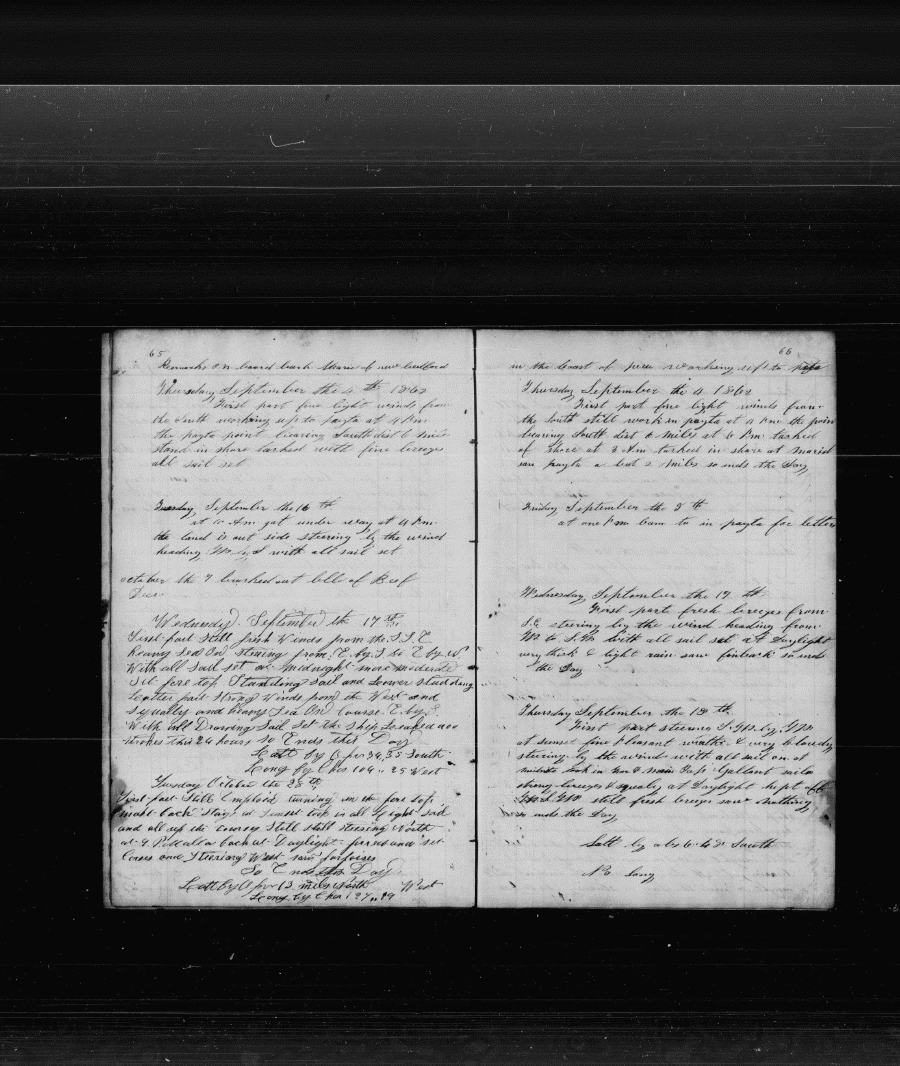 65
Remarks on board bark Maria of new bedford
Thursday September the 4 th 1862
First part fine light winds from
the South working up to payta at 4 Pm
the payta point bearing South dist 6 mile
stand in shore tacked with fine breeses
all sail set
Tuesday September the 16 th
at 10 Am got under way at 4 Pm
the land is out side steering by the wind
heading W by S with all sail set
october the 7 broched out bbl of Beef
Wednesday September the 17 th
First part Still fresh Winds from the S S E
heavy Sea On steering from E by S to E by N
With all Sail set at midnight more moderate
Set fore top Standding Sail and Lower Studding
Leatter part Strong Winds from the West and
Squally and heavy Sea On Course E by S
With all Drawing Sail Set the Ship Leaked 400
strokes this 24 hours So Ends this Day
Latt by O her 34,55 South
Long by Cher 104 " 25 West
Tuesday October the 28 th
First part Still Employed turning in the fore top
mast back Stays at Sunset took in all Light Sail
and all up the Courses Still still steering North
at 9 P.M all a back at Daylight and set
Corses and Steering West saw porpoises
So Ends this Day
Latt by O ber 13 mils North West
Long by Cher 127 " 49
66
in the boast of peru working up to payta
Thursday September the 4 1862
First part fine light winds from
the South still work in payta at 4 Pm the poin
bearing South dist 6 miles at 6 Pm tacked
of shore at 3 Am tacked in shore at
saw payta a bout 2 miles so ends the Day
Friday September the 5 th
at one Pm bam to in payta for letters
Wednesday September the 17 th
First part fresh breeses from
S.E steering by the wind heading from
W to S.W with all sail set at Daylight
very thick & light rain saw finback so ends
the Day
Thursday September the 18 th
First part steering S.W by W
at sunset fine Pleasant weather & very cloudy
steering by the winds with all sail on at
midnite took in fore & main Top Gallant sails
strong breeses & squaly at Daylight kept off
W.S.W still fresh breeses saw nothing
so ends the Day
Latt by obs 6.42 South
No long